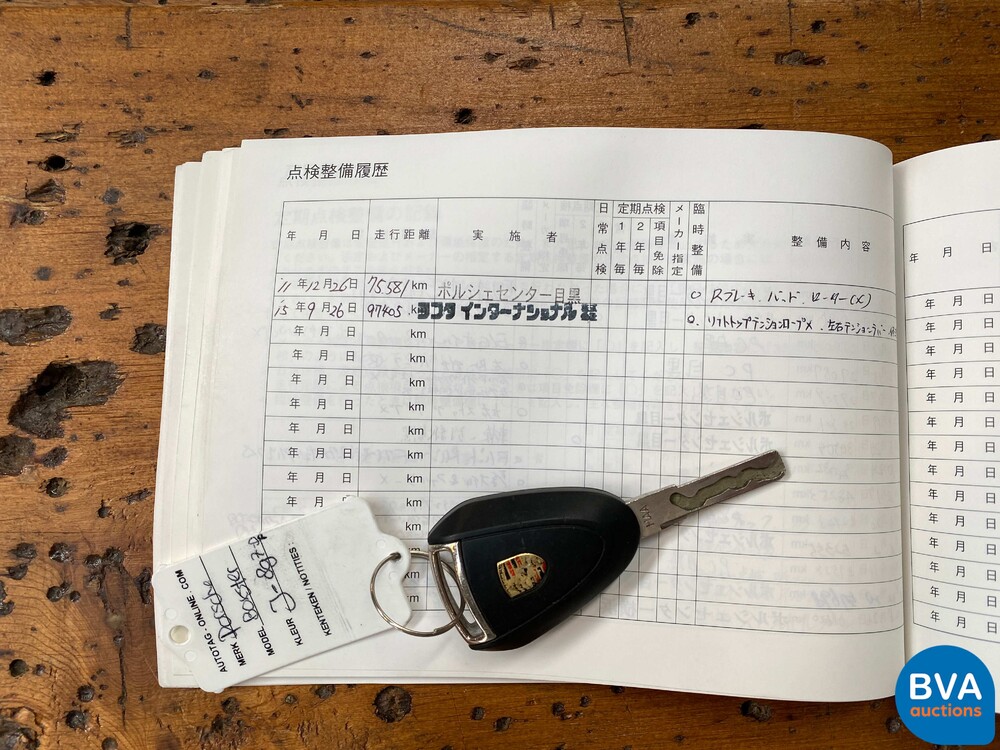 点検整備履歴
年 月 日 走行距離 実施者 日常点検 定期点検 1年毎 2年毎 項目免除 メーカー指定 臨時整備 整備内容
'11年12月26日 75581km ポルシェセンター目黒 ○ Rブレーキ パッド ローター(X)
'15年9月26日 97405 km ヨコタ インターナショナル ○
年 月 日 km
年 月 日 km
年 月 日 km
年 月 日 km
年 月 日 km
年 月 日 km
年 月 日 km
km
km
年 月 日
年 月 日
年 月 日
年 月 日
年 月 日
年 月 日
年 月 日
年 月 日
年 月 日
年 月 日
年 月 日
年 月 日
年 月 日
年 月 日
年 月 日
AUTOTAG-ONLINE.COM
MERK Porsche
MODEL Boxster
KLEUR
KENTEKEN / NOTITIES:
BVA
auctions